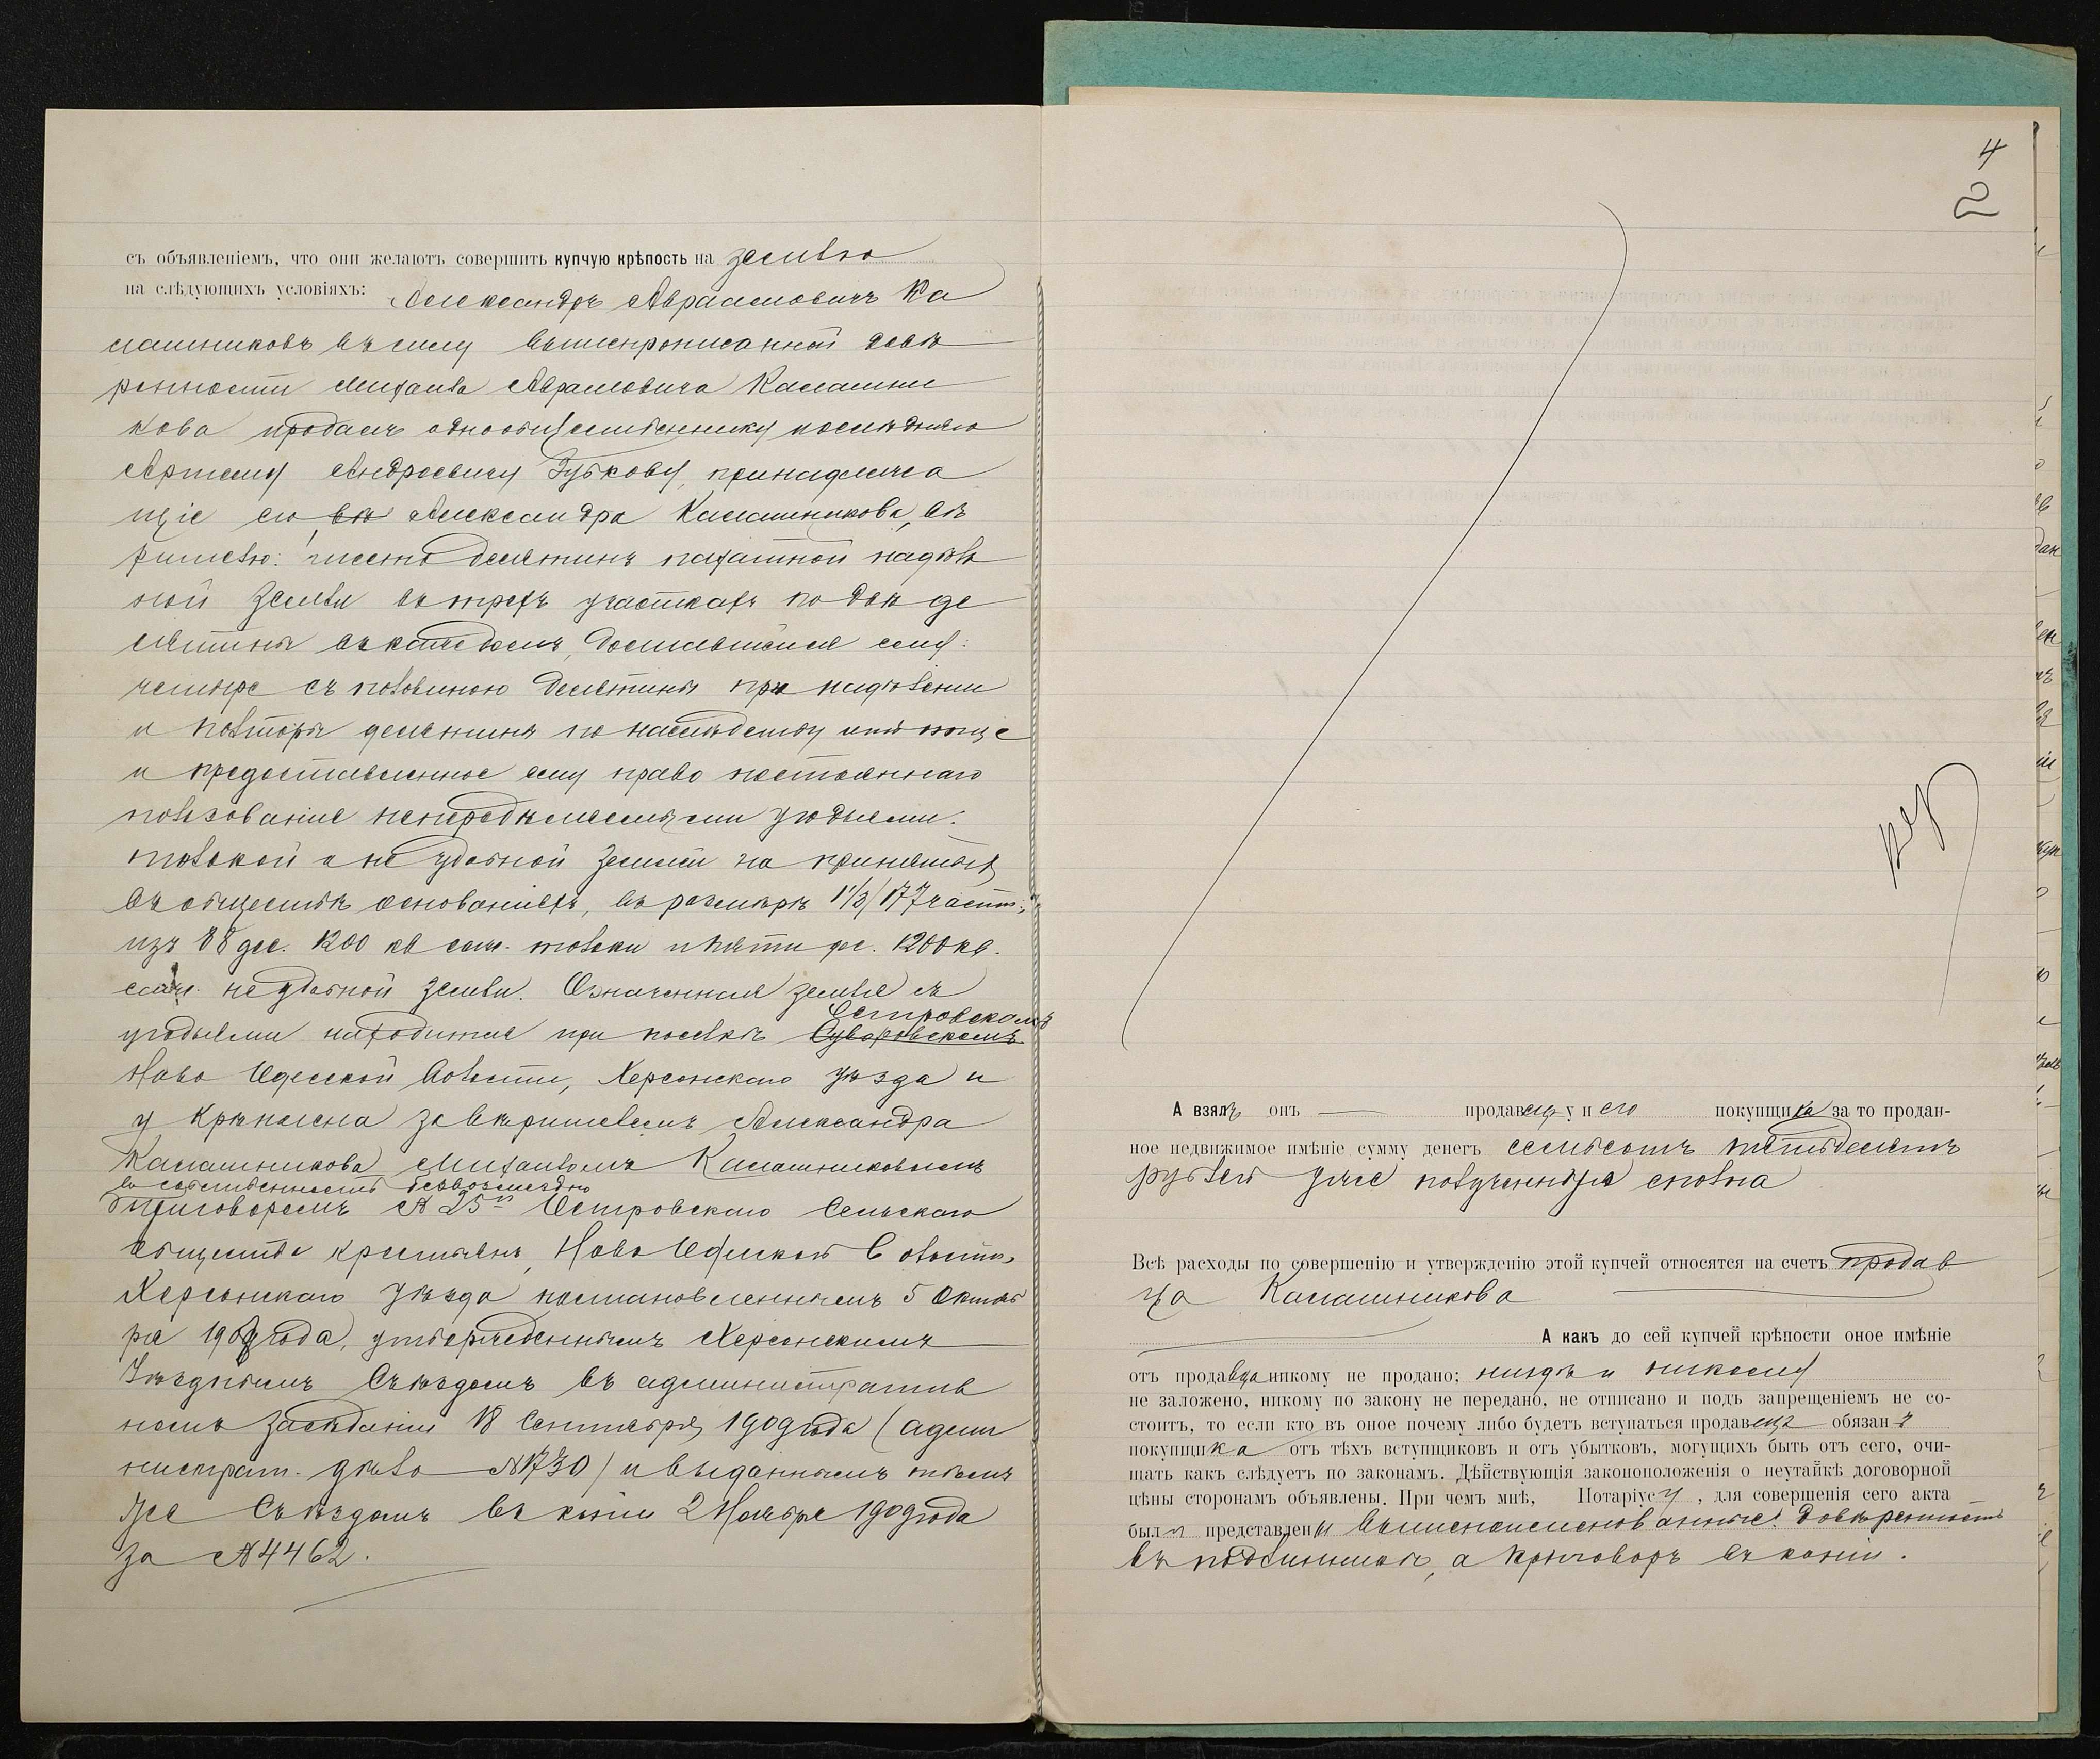 съ объявленіемъ, что они желаютъ совершить купчую крѣпость на землю
на слѣдующихъ условіяхъ: Александръ Авраамовичъ Ка
лашниковъ въ силу вышепрописанной довѣ
ренности Михаила Аврамовича Калашни
кова продалъ однообщественнику послѣдняго
Артему Андреевичу Зубкову, принадлежа
щіе ему Александра Калашникова, вѣ
рителю: шесть десятинъ пахатной надѣль
ной земли въ трехъ участкахъ по двѣ де
сятины въ каждомъ, доставшіеся ему:
четыре съ половиною десятины при надѣленіи
и полторы десятины по наслѣдству
и предоставленное ему право постояннаго
пользованія непередѣляемыми угодьями:
толокой и не удобной землей на принятыхъ
въ обществѣ основаніяхъ, въ размѣрѣ 1 1/3/177 части
изъ 88 дес. 1200 кв саж. толоки и пяти дес. 1200 кв.
саж. неудобной земли. Означенная земля съ
Островскомъ
угодьями находится при поселкѣ Суворовскомъ
Ново Одесской Волости, Херсонскаго уѣзда и
укрѣплена за вѣрителемъ Александра
Калашникова Михаиломъ Калашниковымъ
въ собственность безвозмездно
Приговоромъ № 25 Островскаго Сельскаго
общества крестьянъ, Ново Одесской Волости,
Херсонскаго уѣзда постановленнымъ 5 Октяб
ря 1908 года, утвержденнымъ Херсонскимъ
Уѣзднымъ Съѣздомъ въ административ
номъ засѣданіи 18 Сентября 1909 года (адми
нистрат. дѣло №1730) и выданнымъ тѣмъ
же Съѣздомъ въ копіи 2 Ноября 1909 года
за №4462.
4
2
А взялъ онъ продавецъ у него покупщика за то продан-
ное недвижимое имѣніе сумму денегъ семьсотъ пятьдесятъ
рублей уже полученныя сполна
Всѣ расходы по совершенію и утвержденію этой купчей относятся на счетъ продав
ца Калашникова
А какъ до сей купчей крѣпости оное имѣніе
отъ продавца никому не продано; нигдѣ и никому
не заложено, никому по закону не передано, не отписано и подъ запрещеніемъ не со-
стоитъ, то если кто въ оное почему либо будетъ вступаться продавецъ обязанъ
покупщика отъ тѣхъ вступщиковъ и отъ убытковъ, могущихъ быть отъ сего, очи-
щать какъ слѣдуетъ по законамъ. Дѣйствующія законоположенія о неутайкѣ договорной
цѣны сторонамъ объявлены. При чемъ мнѣ, Нотаріусу, для совершенія сего акта
были представлены вышепоименованные: довѣренность
въ подлинникѣ, а приговоръ въ копіи.